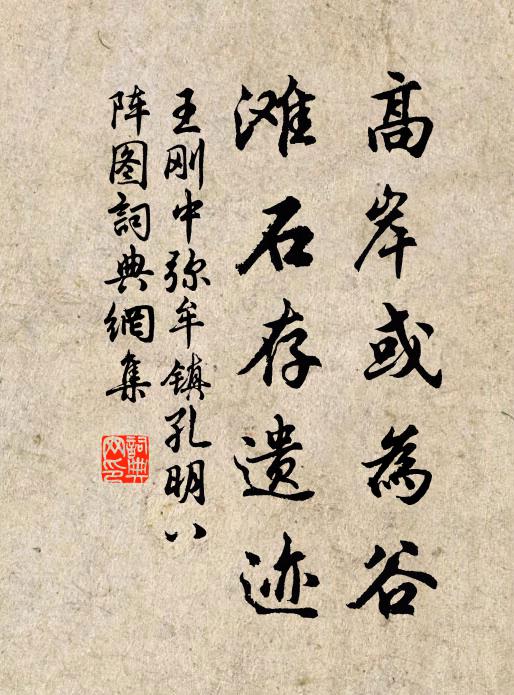 高岸或為谷
滩石存遗迹
王刚中弥牟镇孔明八
阵图詞典網集
詞典
网印